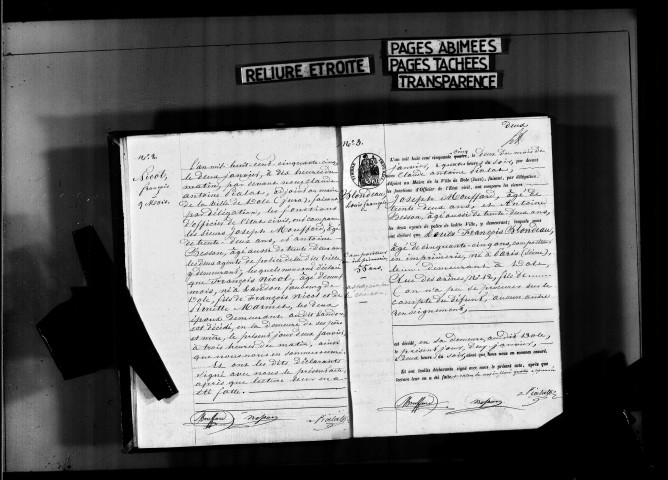 RELIURE ETROITE
PAGES ABIMEES
PAGES TACHEES
TRANSPARENCE
N° 2.
Nicot,
françois
9 Mois.
L'an mil huit cent cinquante cinq,
le deux janvier, à dix heures du
matin, par devant nous Claude
antoine Pialat, adjoint au maire
de la Ville de Dole (Jura), faisant
par délégation, les fonctions
d'officier de l'état civil, ont comparu
les sieurs Joseph Mouffard, âgé
de trente deux ans, et antoine
Besson, âgé aussi de trente deux ans
les deux agents de police de la dite Ville,
y demeurant; lesquels nous ont déclaré
que François Nicot, âgé de neuf
mois, né à faubourg de
Dole, fils de François Nicot et de
Marmet, les deux
époux demeurant audit
est décédé, en la demeure de ses père
et mère, le présent jour deux janvier,
à trois heures du matin, ainsi
que nous nous en sommes assuré.
Et ont les dits déclarants
signé avec nous le présent acte,
après que lecture leur en a
été faite.
Mouffard Besson Pialat
deux
N° 3.
Blondeau
Louis françois
compositeur
en imprimerie
55 ans,
L'an mil huit cent cinquante cinq, le deux du mois de
janvier, à quatre heures du soir, par devant
Claude antoine Pialat,
adjoint au Maire de la Ville de Dole (Jura), faisant, par délégation,
les fonctions d'Officier de l'Etat civil, ont comparu les sieurs
Joseph Mouffard, âgé de
trente deux ans, et Antoine
Besson, âgé aussi de trente deux ans,
les deux agents de police de ladite Ville, y demeurant; lesquels nous
ont déclaré que Louis François Blondeau,
âgé de cinquante-cinq ans, compositeur
en imprimerie, né à Paris (Seine),
demeurant à Dole,
Rue des arènes N° 12, fils de
(on n'a pu se procurer sur le
compte du défunt, aucun autre
renseignement),
est décédé, en sa demeure, audit Dole,
le présent jour, deux janvier,
à deux heures du soir, ainsi que Nous nous en sommes assuré.
Et ont lesdits déclarants signé avec nous le présent acte, après que
lecture leur en a été faite
Mouffard Besson Pialat